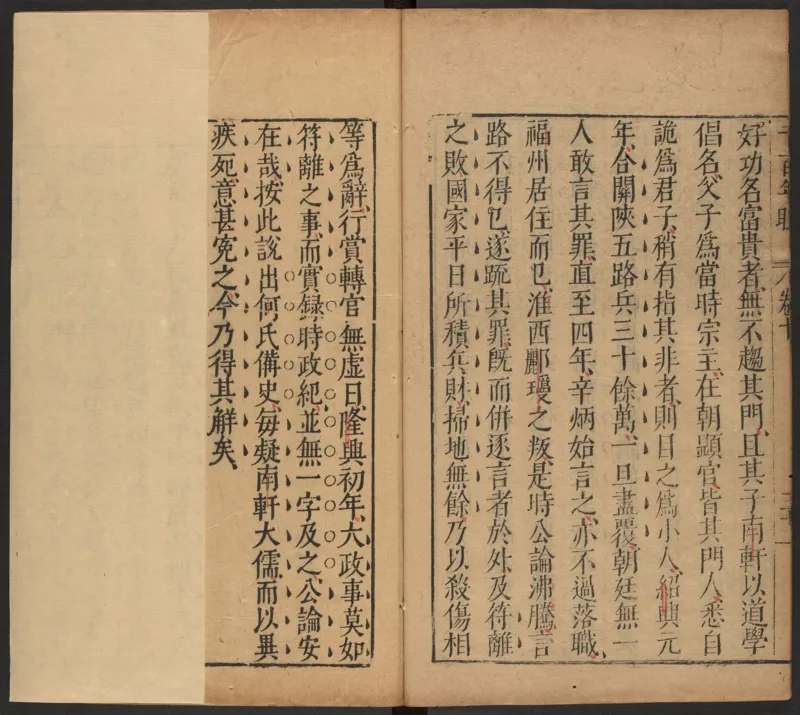 好功名富貴者無不趨其門且其子南軒以道學
倡名父子為當時宗主在朝顯官皆其門人悉自
詭為君子稍有指其非者則目之為小人紹興元
年合關陝五路兵三十餘萬一旦盡覆朝廷無一
人敢言其罪直至四年辛炳始言之亦不過落職
福州居住而已淮西酈瓊之叛是時公論沸騰言
路不得已遂䟽其罪旣而併逐言者於外及符離
之敗國家平日所積兵財掃地無餘乃以殺傷相
等為辭行賞轉官無虚日隆興初年大政事莫如
符離之事而實錄時政紀並無一字及之公論安
在哉按此説出何氏備史每疑南軒大儒而以異
疾死意甚寃之今乃得其解矣